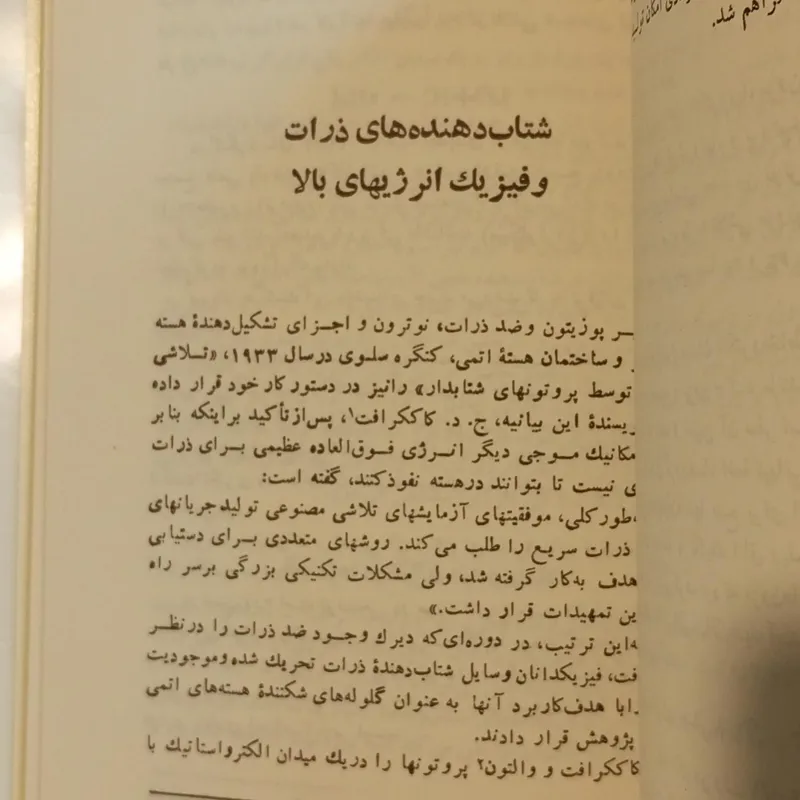 خواهم شد.
شتاب‌دهنده‌های ذرات
و فیزیك انرژیهای بالا
پوزیتون وضد ذرات، نوترون و اجزای تشکیل‌دهندهٔ هسته
و ساختمان هستهٔ اتمی، کنگره سلوی درسال ۱۹۳۳، «تلاشی
توسط پروتونهای شتابدار» رانیز در دستور کار خود قرار داده
این بیانیه، ج. د. کاککرافت۱، پس‌از تأکید براینکه بنابر
موجی دیگر انرژی فوق‌العاده عظیمی برای ذرات
نیست تا بتوانند درهسته نفوذکنند، گفته است:
طورکلی، موفقیتهای آزمایشهای تلاشی مصنوعی تولیدجریانهای
ذرات سریع را طلب می‌کند. روشهای متعددی برای دستیابی
هدف به‌کار گرفته شد، ولی مشکلات تکنیکی بزرگی برسر راه
تمهیدات قرار داشت.»
این ترتیب، در دوره‌ای‌که دیرك وجود ضد ذرات را درنظر
فیزیکدانان وسایل شتاب‌دهندهٔ ذرات تحریك شده وموجودیت
هدف‌کاربرد آنها به عنوان گلوله‌های شکنندهٔ هسته‌های اتمی
پژوهش قرار دادند.
کاککرافت و والتون۲ پروتونها را دریك میدان الکترواستاتیك با